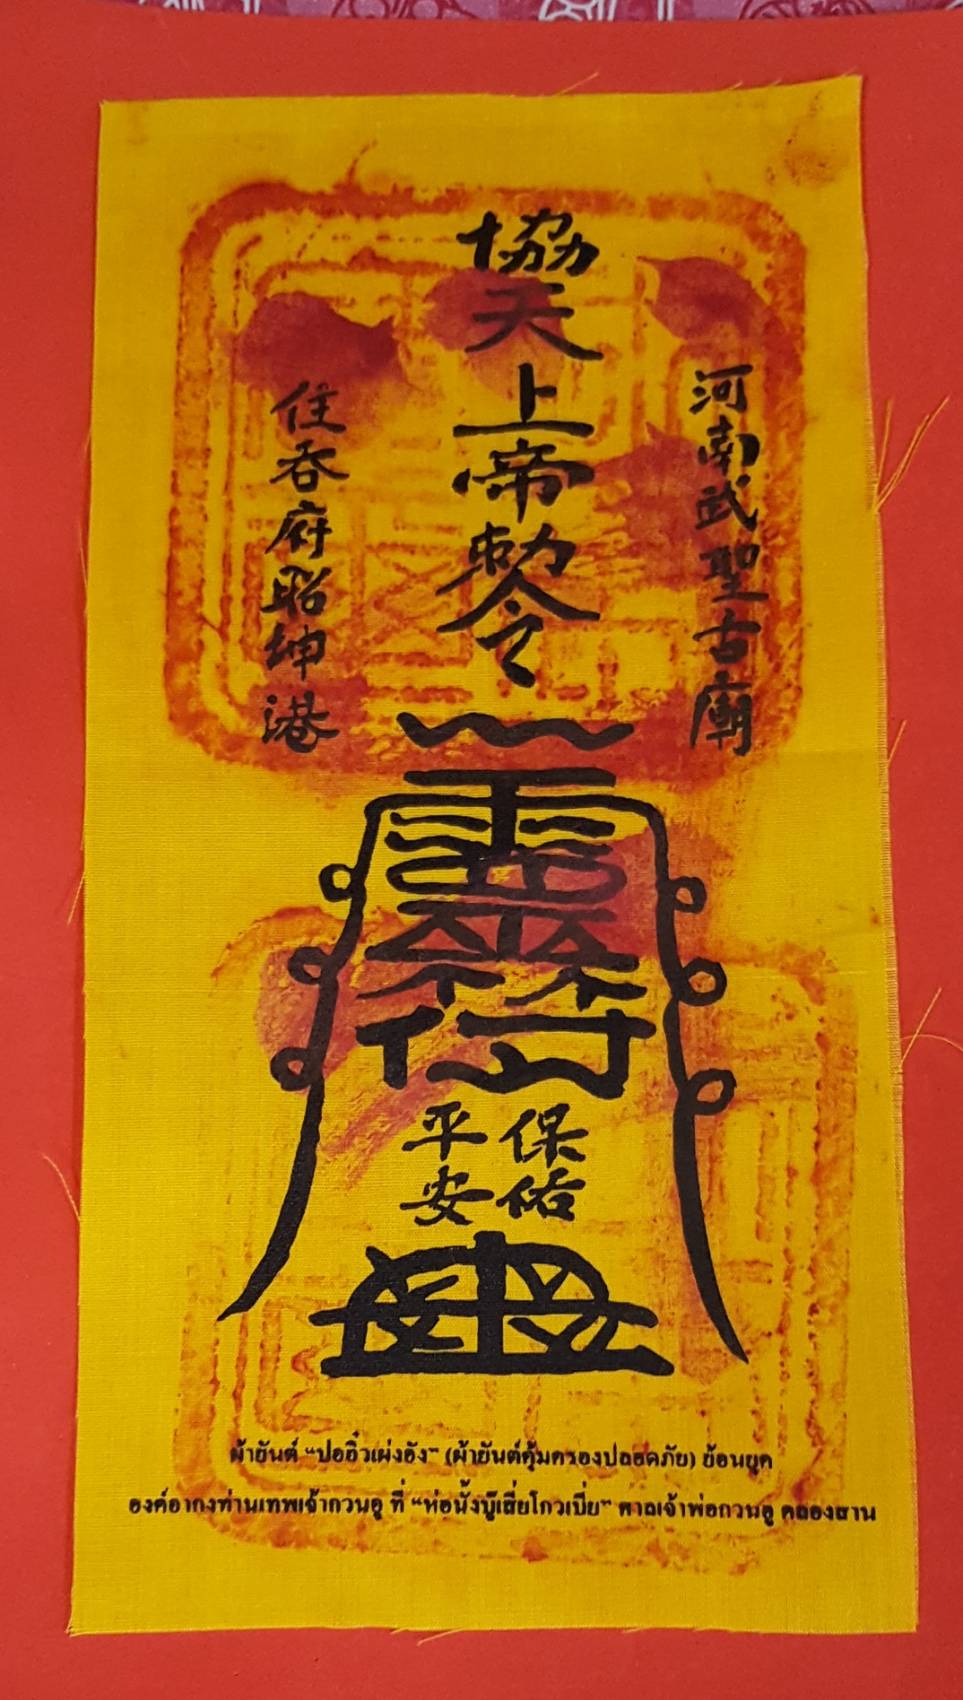 協天上帝勅令
河南武聖古廟
住吞府昭坤港
保佑
平安
ผ้ายันต์ “ปออิ๋วเผ่งอัง” (ผ้ายันต์คุ้มครองปลอดภัย) ย้อนยุค
องค์อากงท่านเทพเจ้ากวนอู ที่ “ห่อนั้งบู๊เสี่ยโกวเบี่ย” ศาลเจ้าพ่อกวนอู คลองสาน